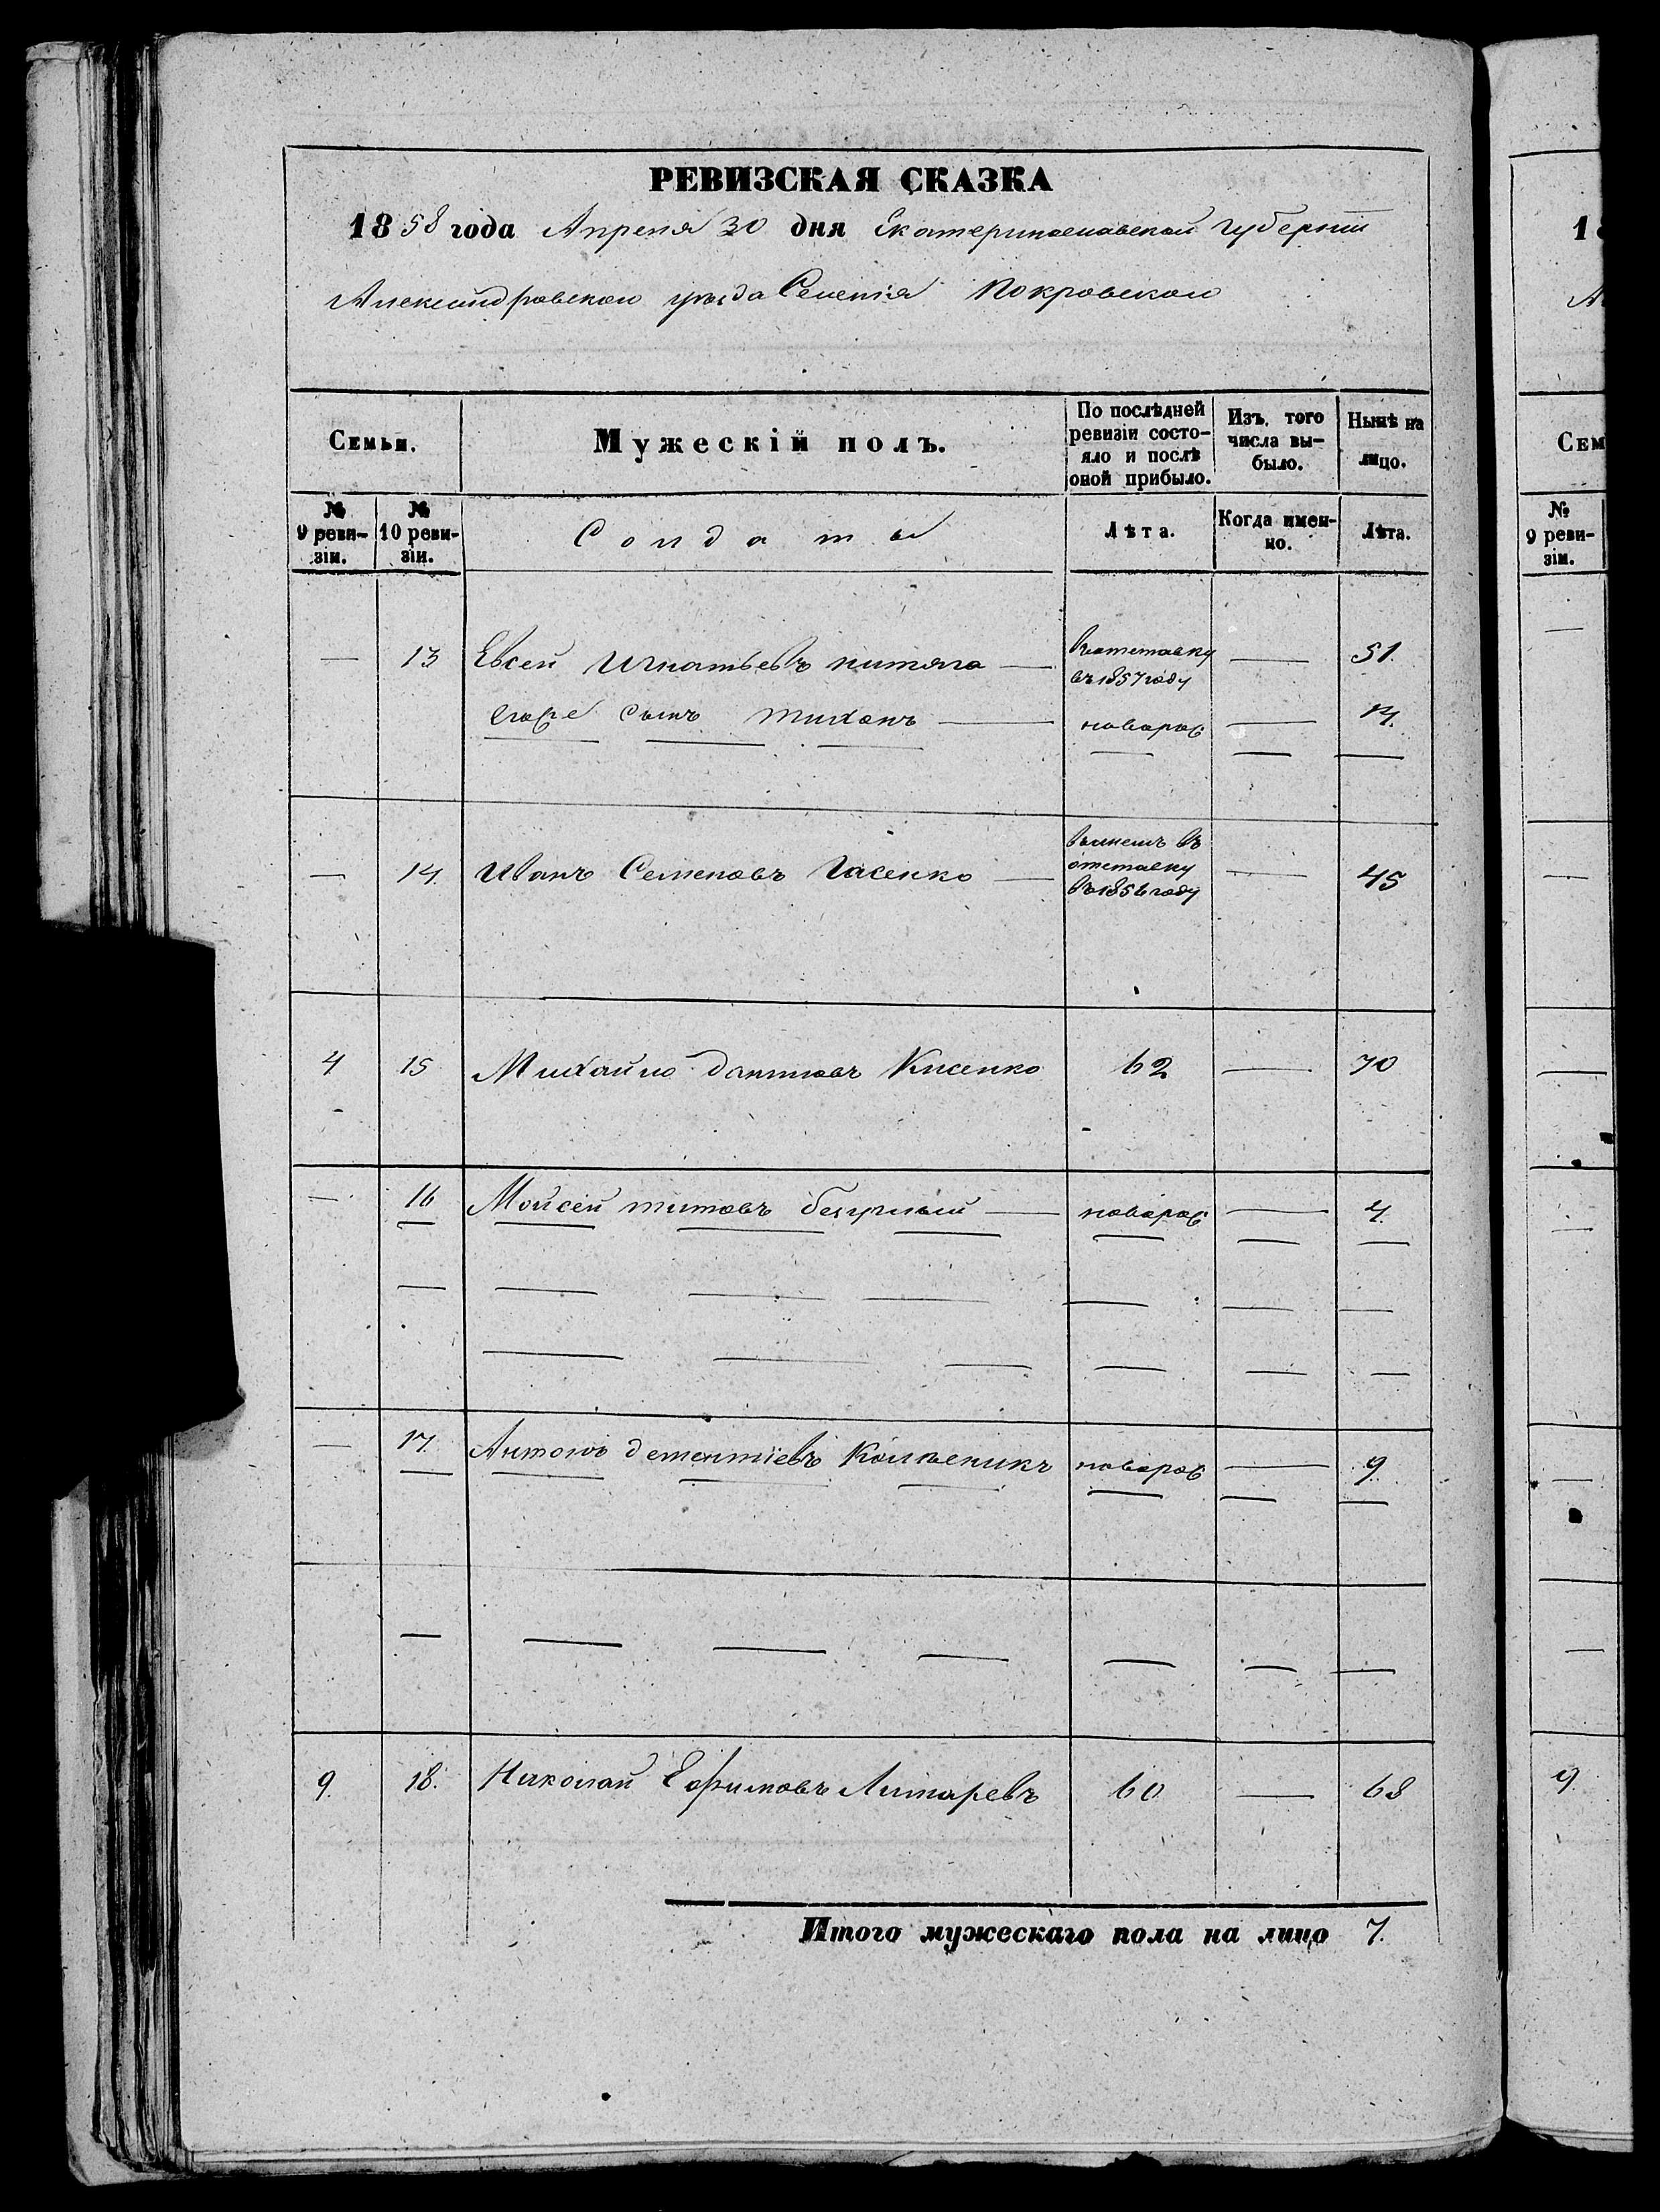 РЕВИЗСКАЯ СКАЗКА
1858 года Апреля 30 дня Екатеринославской Губерніи
Александровского уѣзда Селенія Покровского
Семьи.
Мужескій полъ.
По послѣдней ревизіи состо-
яло и послѣ
оной прибыло.
Изъ того
числа вы-
было.
Нынѣ на
лицо.
№ 9 реви-
зіи.
№ 10 реви-
зіи.
Солдаты
Лѣта.
Когда имен-
но.
Лѣта.
— 13 Евсей Игнатьевъ — отставку — 51.
въ 1857 году
Его сынъ Тихонъ — новорож —
— 14. Иванъ Семеновъ Гасенко — въ отставку — 45
въ 1856 году
4 15 Михайло Даниловъ Кисенко 62 — 70
— 16 Мойсей Титовъ — новорож — 4.
— 17. Антонъ Дементіевъ новорож — 9.
9. 18. Николай Ефимовъ Литаревъ 60 — 68
Итого мужескаго пола на лицо 7.
1
А
Сем
№
9 реви-
зіи.
9.